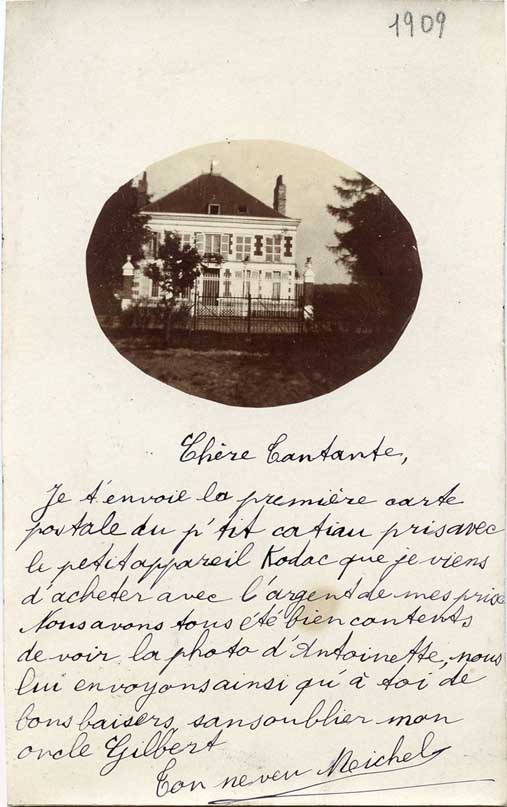 1909
Chère Tantante,
Je t'envoie la première carte
postale du p'tit catiau pris avec
le petit appareil Kodac que je viens
d'acheter avec l'argent de mes prix
Nous avons tous été bien contents
de voir la photo d'Antoinette, nous
lui envoyons ainsi qu'à toi de
bons baisers sans oublier mon
oncle Gilbert
Ton neveu Michel